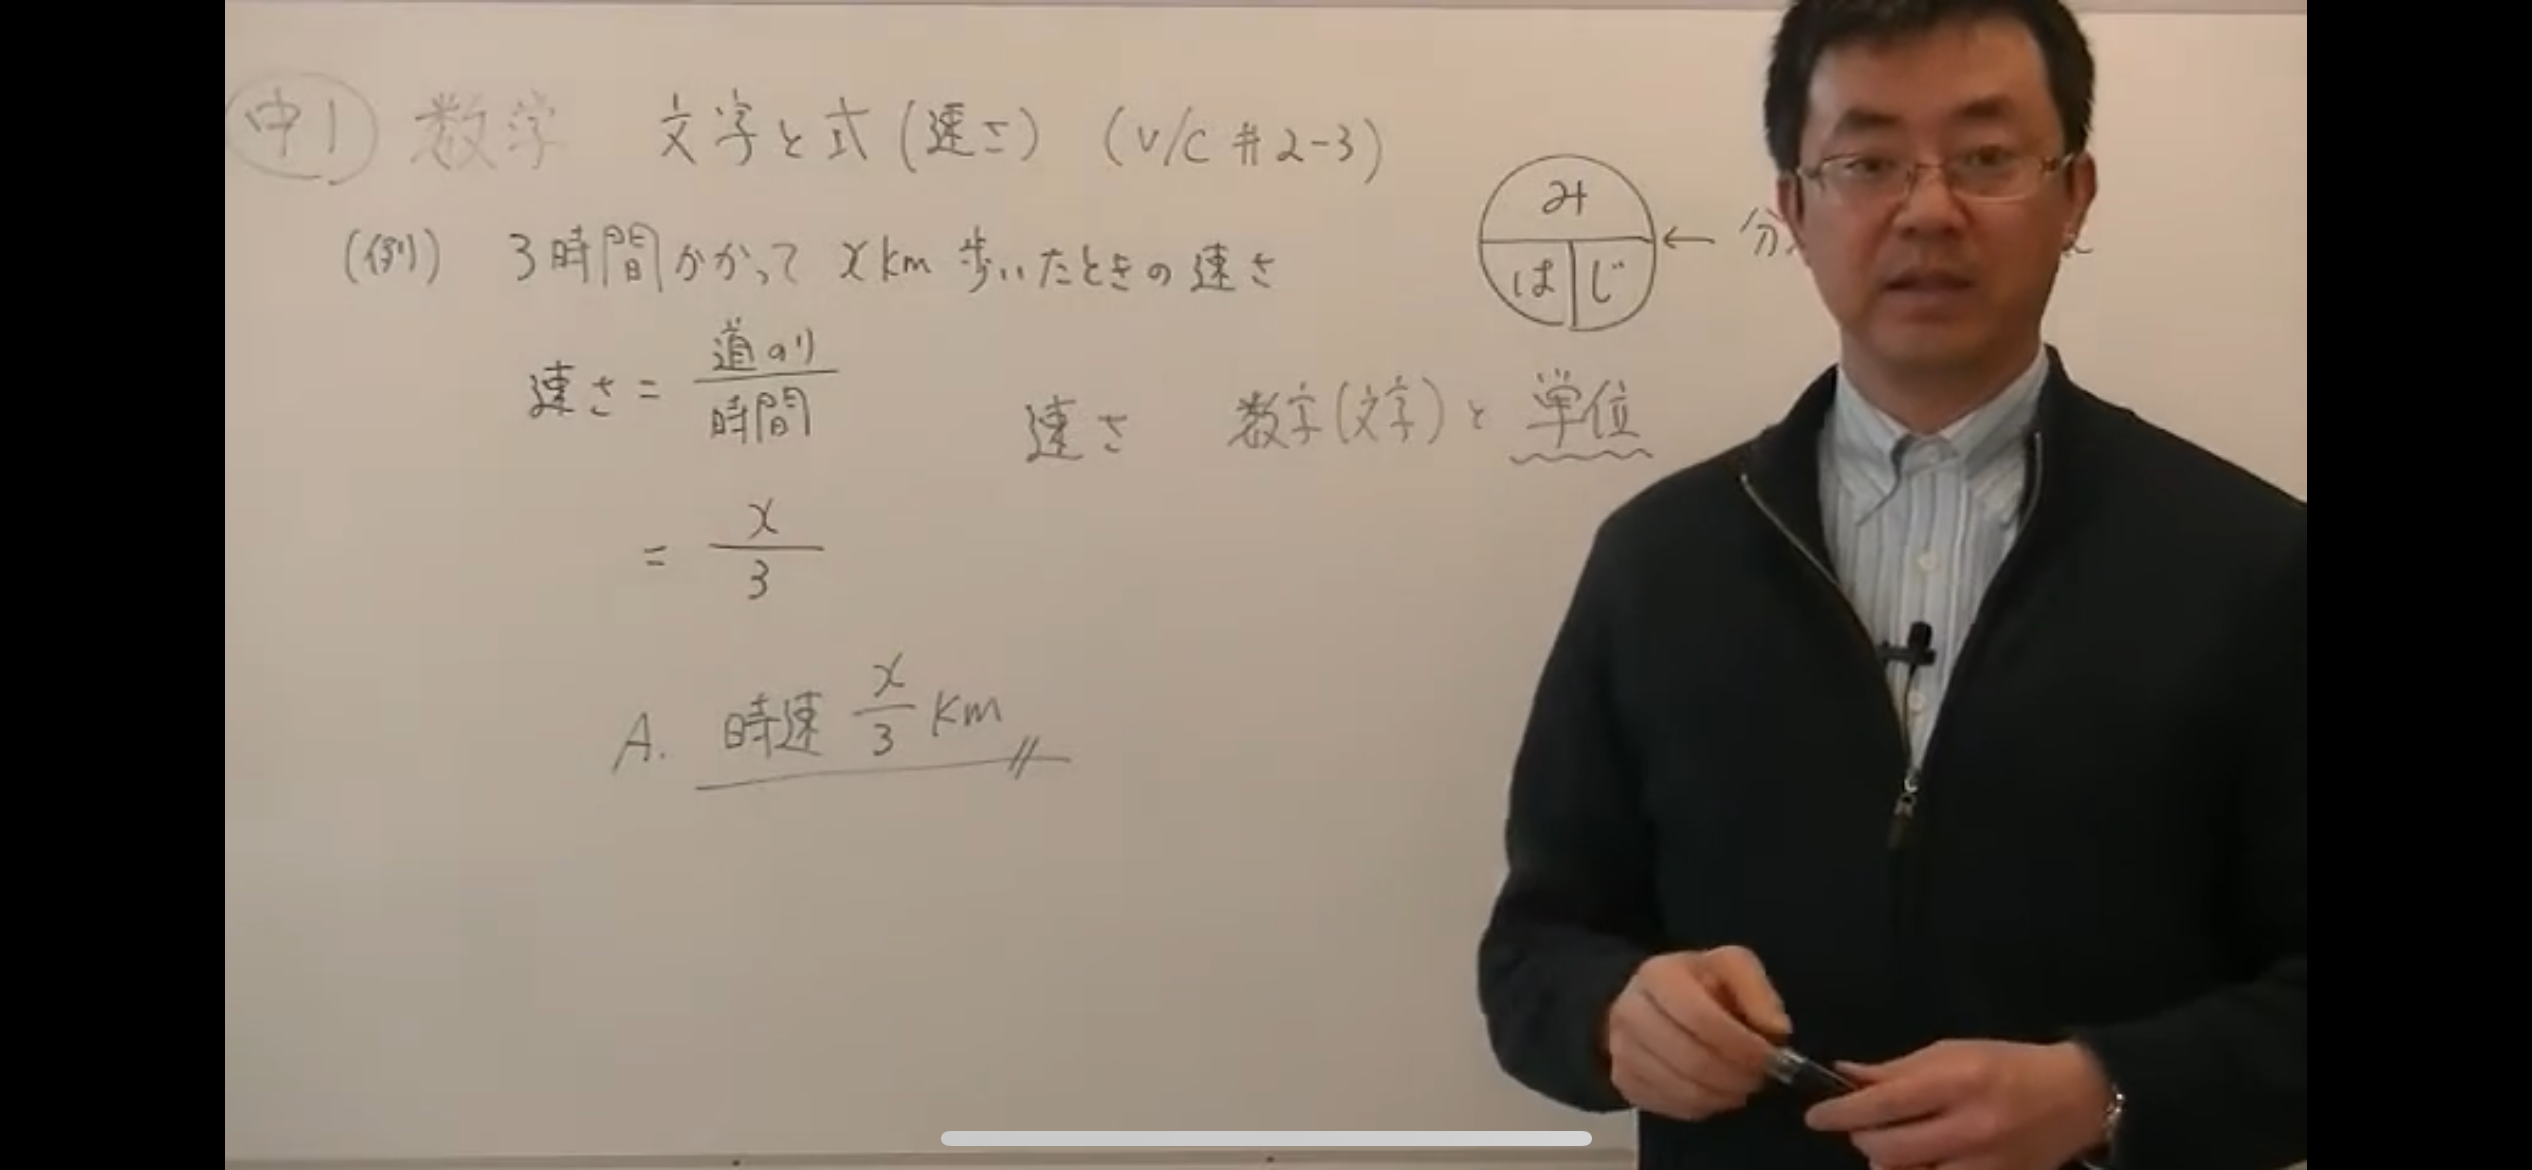 中1 数学 文字と式(速さ) (V/C #2-3)
(例) 3時間かかって x km 歩いたときの速さ
み
は じ
← 分
速さ = 道のり/時間
速さ 数字(文字)と単位
= x/3
A. 時速 x/3 km